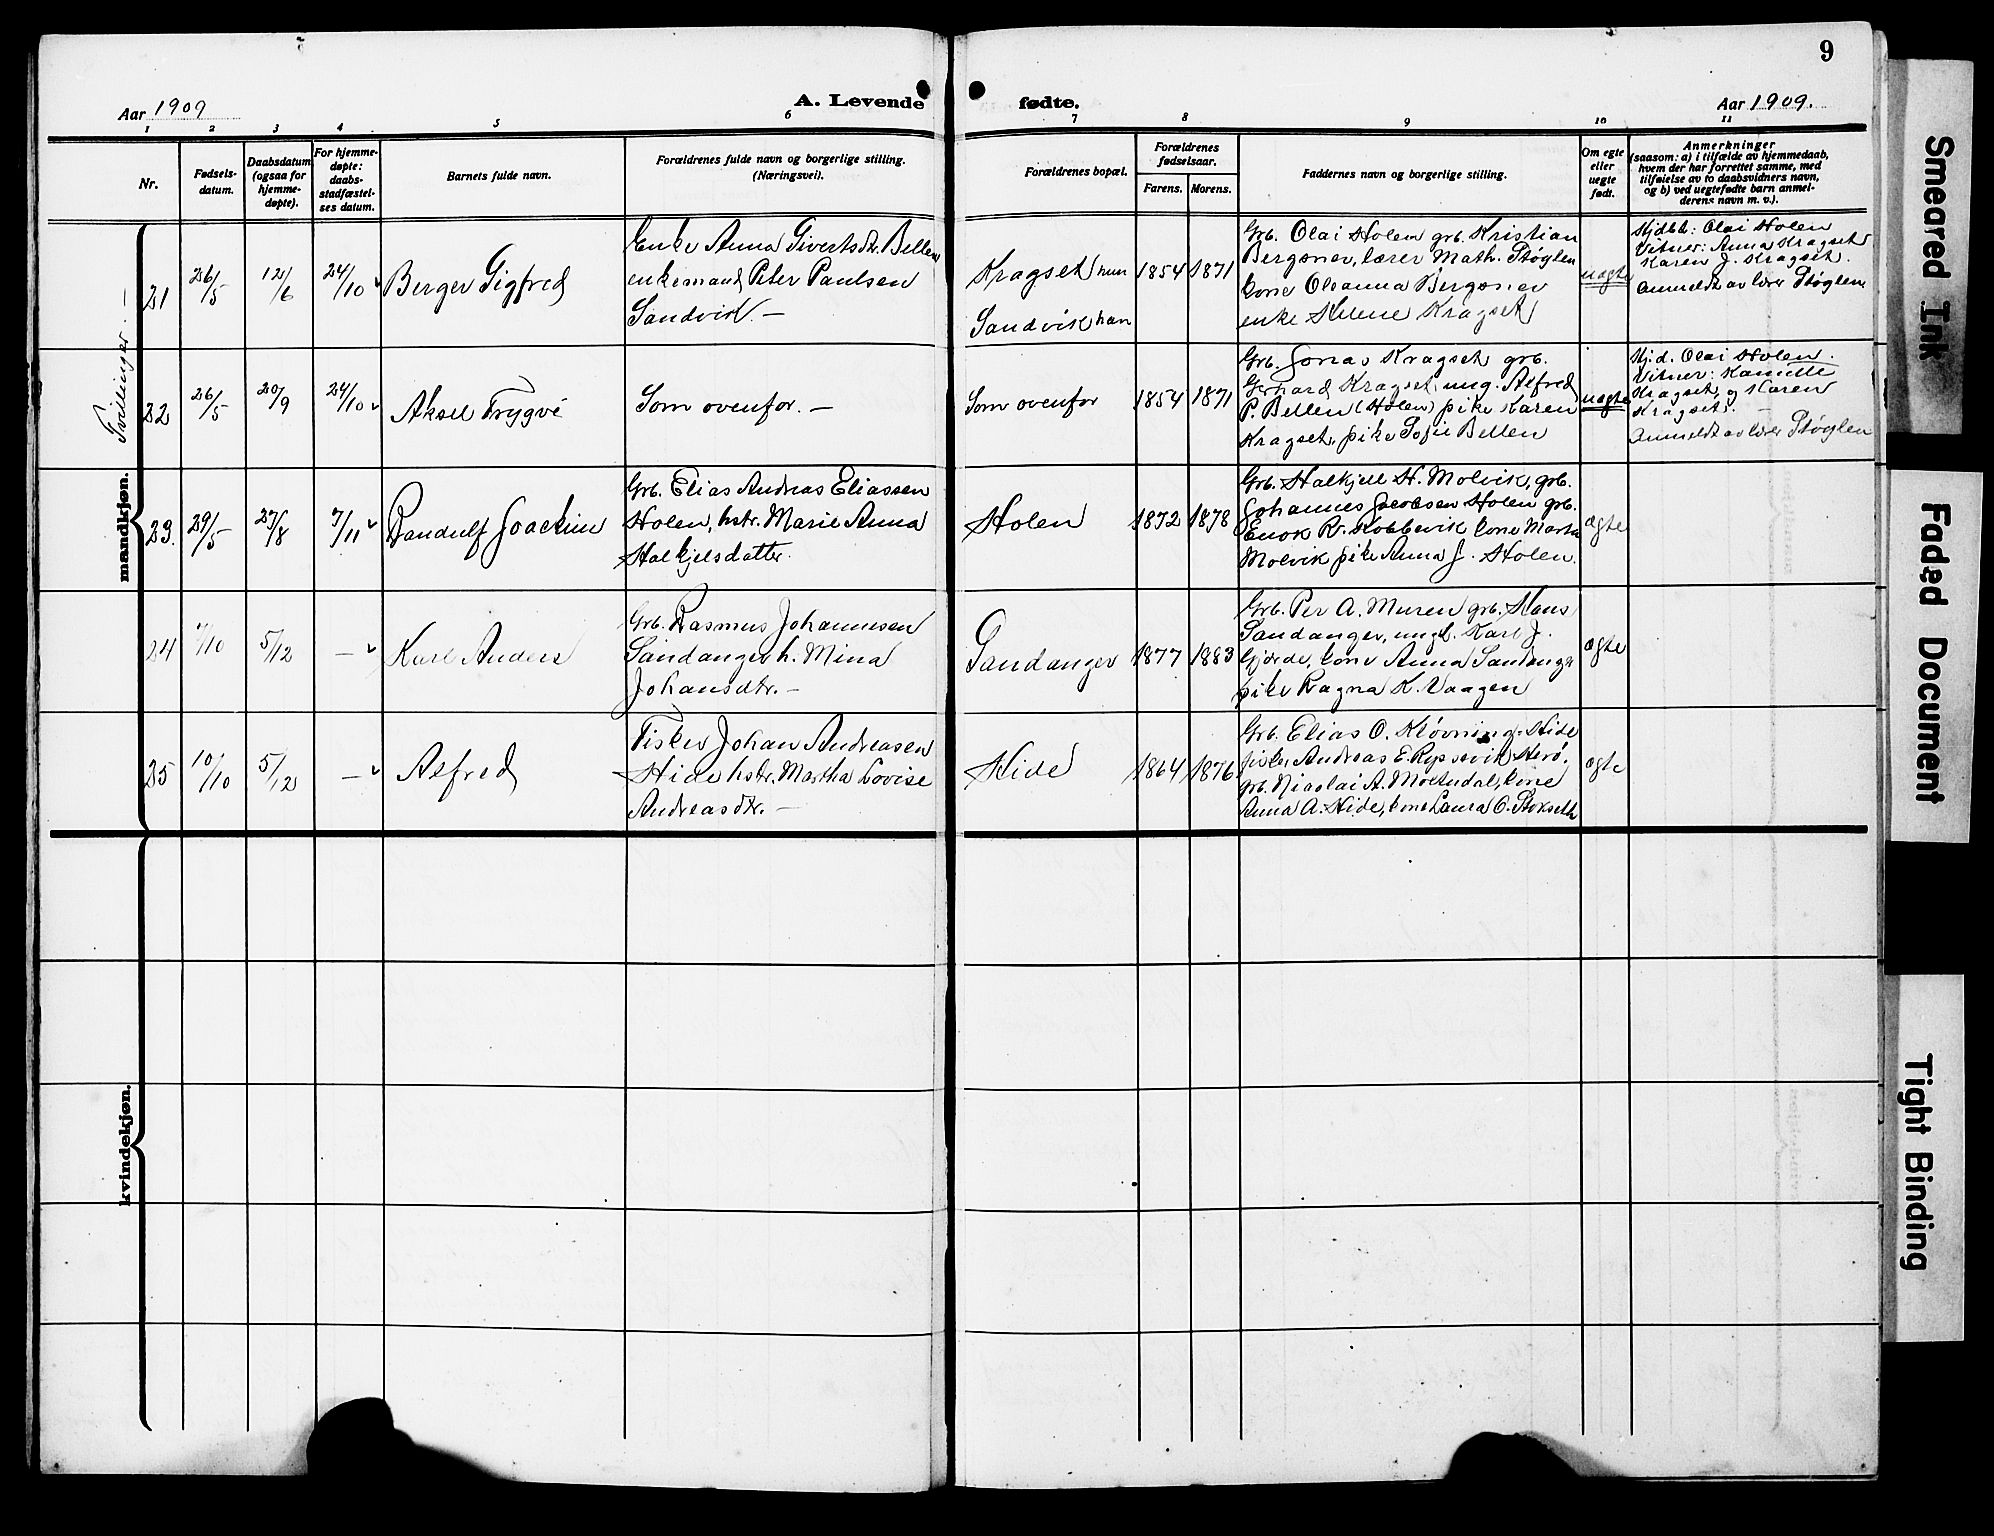 9
Aar 1909
A. Levende fødte.
Aar 1909.
1 2 3 4 5 6 7 8 9 10 11
Nr.
Fødsels-
datum.
Daabsdatum
(ogsaa for
hjemme-
døpte).
For hjemme-
døpte:
daabs-
stadfæstel-
ses datum.
Barnets fulde navn.
Forældrenes fulde navn og borgerlige stilling.
(Næringsvei).
Forældrenes bopæl.
Forældrenes
fødselsaar.
Farens. Morens.
Faddernes navn og borgerlige stilling.
Om egte
eller
uegte
født.
Anmerkninger
(saasom: a) i tilfælde av hjemmedaab,
hvem der har forrettet samme, med
tilføielse av to daabsvidners navn,
og b) ved uegtefødte barn anmel-
derens navn m. v.).
Tvillinger. —
mandkjøn.
21
26/5
12/6
24/10
Berger Sigfred
Enke Anna Sivertsdtr. Bellen
enkemand Peter Paulsen
Sandvik. —
Kragset hun
Sandvik han
1854
1871
Grb. Olai Holen grb. Kristian
Bergsnev, lærer Math. Støylen
kone Oleanna Bergsnev
enke Helene Kragset
uægte
Hjdbt: Olai Holen
Vitner: Anna Kragset
Karen J. Kragset.
Anmeldt av lærer Støylen
22
26/5
20/9
24/10
Aksel Trygve
Som ovenfor. —
Som ovenfor
1854
1871
Grb. Jonas Kragset grb.
Gerhard Kragset, ung. Alfred
P. Bellen (Holen) pike Karen
Kragset, pike Sofie Bellen
uægte
Hj.d. Olai Holen.
Vitner:
Kragset, og Karen
Kragset. —
Anmeldt av lærer Støylen
23.
29/5
27/8
7/11
Randulf Joackim
Grb. Elias Andreas Eliassen
Holen, hstr. Marie Anna
Halkjelsdatter.
Holen
1872
1878
Grb. Halkjell H. Molvik, grb.
Johannes Jacobsen Holen grb.
Enok R. Kobbevik kone Martha
Molvik pike Anna J. Holen.
ægte
24
/10
5/12
—
Karl Anders
Grb. Rasmus Johannesen
Sandanger h. Mina
Johansdtr. —
Sandanger
1877
1883
Grb. Per A. Muren grb. Hans
Sandanger, ungk. Karl J.
Gjerde, kone Anna Sandanger
pike Ragna K. Vaagen
ægte
25
10/10
5/12
—
Alfred
Fisker Johan Andreasen
Hide hstr. Martha Lovise
Andreasdtr. —
Hide
1864
1876
Grb. Elias O. Kløvning, Hide
fisker Andreas E. Rypsvik, Herø,
grb. Nicolai A. Moltudal, kone
Anna A. Hide, kone Laura O. Stokseth
ægte
kvindekjøn.
Smeared Ink
Faded Document
Tight Binding